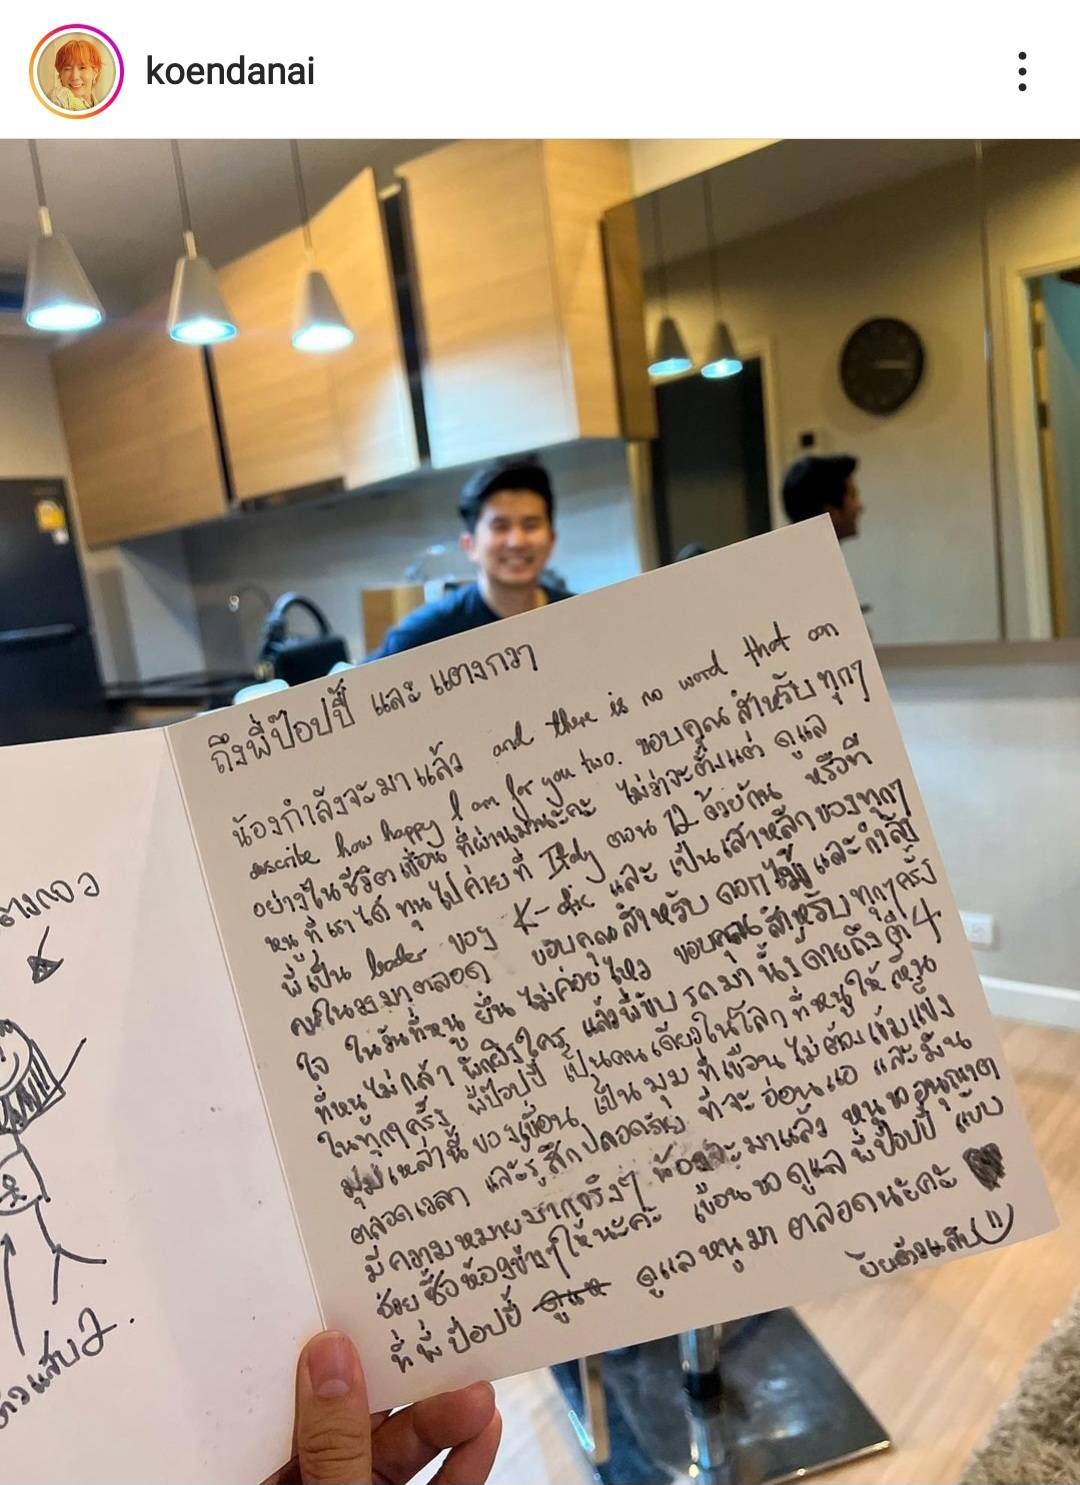 koendanai
ถึงพี่ป๊อปปี้ และ แตงกวา
น้องกำลังจะมาแล้ว and there is no word that can
describe how happy I am for you two. ขอบคุณสำหรับทุกๆ
อย่างในชีวิตเขื่อน ที่ผ่านมานะคะ ไม่ว่าจะตั้งแต่ ดูแล
หนู ที่เราได้ทุนไปค่ายที่ Italy ตอน 12 ด้วยกัน หรือที่
พี่เป็น leader ของ K-otic และเป็นเสาหลักของทุกๆ
คนในวงมาตลอด ขอบคุณสำหรับดอกไม้ และกำลัง
ใจ ในวันที่หนู ยืนไม่ค่อยไหว ขอบคุณสำหรับทุกๆครั้ง
ที่หนูไม่กล้า พึ่งพิงใคร แล้วพี่ขับรถมา ถึงตี 4
ในทุกๆครั้ง พี่ป๊อปปี้ เป็นคนเดียวในโลก ที่หนูให้เห็น
มุมเหล่านี้ของเขื่อน เป็นมุม ที่เขื่อนไม่ต้องเข้มแข็ง
ตลอดเวลา และรู้สึกปลอดภัย ที่จะอ่อนแอ และมัน
มีความหมายมากจริงๆ น้องจะมาแล้ว หนูขออนุญาต
ช่วยซื้อห้องข้างๆให้นะคะ เขื่อนขอดูแลพี่ป๊อปปี้ แบบ
ที่พี่ป๊อปปี้ ดูแลหนูมา ตลอดนะคะ
แตงกวา